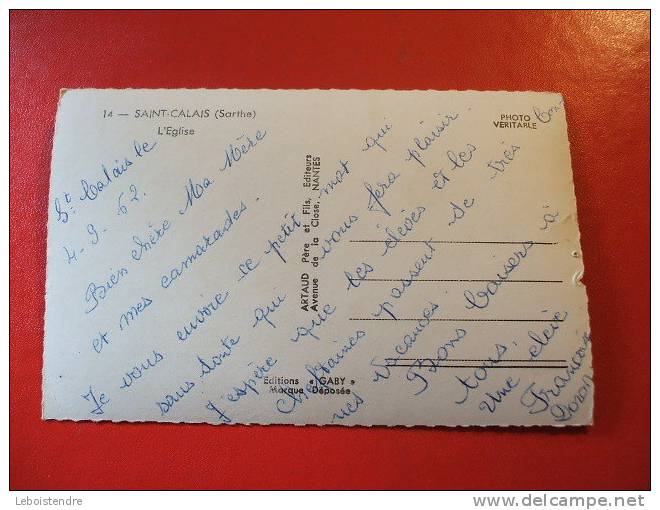 14 — SAINT-CALAIS (Sarthe)
L'Eglise
PHOTO
VERITABLE
ARTAUD Père et Fils, Editeurs
Avenue de la Close, NANTES
Editions « GABY »
Marque Déposée
St Calais le
4-9-62.
Bien chère Ma Mère
et mes camarades.
Je vous envoie ce petit mot qui
sans doute qui vous fera plaisir.
J'espère que les élèves et les
passent de très
vacances.
Bons baisers à
tous.
Une élève
Leboistendre
delcampe.net